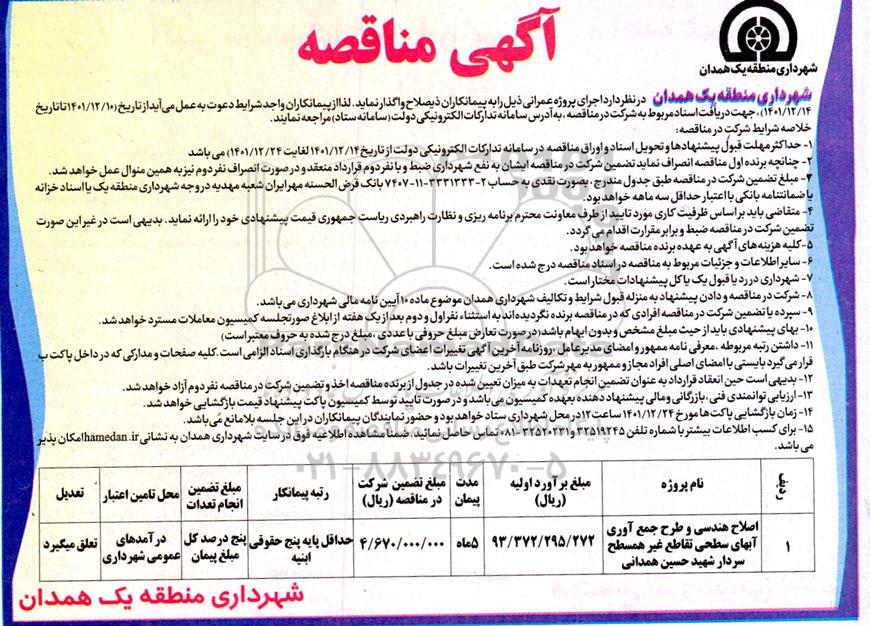 آگهی مناقصه
شهرداری منطقه یک همدان
شهرداری منطقه یک همدان در نظر دارد اجرای پروژه عمرانی ذیل را به پیمانکاران ذیصلاح واگذار نماید. لذا از پیمانکاران واجد شرایط دعوت به عمل می آید از تاریخ (۱۴۰۱/۱۲/۱۰ تا تاریخ
۱۴۰۱/۱۲/۱۴)، جهت دریافت اسناد مربوط به شرکت در مناقصه، به آدرس سامانه تدارکات الکترونیکی دولت (سامانه ستاد) مراجعه نمایند.
خلاصه شرایط شرکت در مناقصه:
۱- حداکثر مهلت قبول پیشنهادها و تحویل اسناد و اوراق مناقصه در سامانه تدارکات الکترونیکی دولت از تاریخ ۱۴۰۱/۱۲/۱۴ لغایت ۱۴۰۱/۱۲/۲۴) می باشد
۲- چنانچه برنده اول مناقصه انصراف نماید تضمین شرکت در مناقصه ایشان به نفع شهرداری ضبط و با نفر دوم قرارداد منعقد و در صورت انصراف نفر دوم نیز به همین منوال عمل خواهد شد.
۳- مبلغ تضمین شرکت در مناقصه طبق جدول مندرج، بصورت نقدی به حساب ۲-۳۳۳۱۳۳۳-۱۱-۷۴۰۷ بانک قرض الحسنه مهر ایران شعبه مهدیه در وجه شهرداری منطقه یک یا اسناد خزانه
یا ضمانتنامه بانکی با اعتبار حداقل سه ماهه خواهد بود.
۴- متقاضی باید بر اساس ظرفیت کاری مورد تایید از طرف معاونت محترم برنامه ریزی و نظارت راهبردی ریاست جمهوری قیمت پیشنهادی خود را ارائه نماید. بدیهی است در غیر این صورت
تضمین شرکت در مناقصه ضبط و برابر مقررات اقدام می گردد.
۵-کلیه هزینه های آگهی به عهده برنده مناقصه خواهد بود.
۶- سایر اطلاعات و جزئیات مربوط به مناقصه در اسناد مناقصه درج شده است.
۷- شهرداری در رد یا قبول یک یا کل پیشنهادات مختار است.
۸- شرکت در مناقصه و دادن پیشنهاد به منزله قبول شرایط و تکالیف شهرداری همدان موضوع ماده ۱۰ آیین نامه مالی شهرداری می باشد.
۹- سپرده یا تضمین شرکت در مناقصه افرادی که در مناقصه برنده نگردیده اند به استثناء نفر اول و دوم بعد از یک هفته از ابلاغ صورتجلسه کمیسیون معاملات مسترد خواهد شد.
۱۰- بهای پیشنهادی باید از حیث مبلغ مشخص و بدون ابهام باشد (در صورت تعارض مبلغ حروفی با عددی، مبلغ درج شده به حروف معتبر است)
۱۱- داشتن رتبه مربوطه، معرفی نامه ممهور و امضای مدیرعامل، روزنامه آخرین آگهی تغییرات اعضای شرکت در هنگام بارگذاری اسناد الزامی است. کلیه صفحات و مدارکی که در داخل پاکت ب
قرار می گیرد بایستی با امضای اصلی افراد مجاز و ممهور به مهر شرکت طبق آخرین تغییرات باشد.
۱۲- بدیهی است حین انعقاد قرارداد به عنوان تضمین انجام تعهدات به میزان تعیین شده در جدول از برنده مناقصه اخذ و تضمین شرکت در مناقصه نفر دوم آزاد خواهد شد.
۱۳- ارزیابی توانمندی فنی، بازرگانی و مالی پیشنهاد دهنده بعهده کمیسیون می باشد و در صورت تایید توسط کمیسیون پاکت پیشنهاد قیمت بازگشایی خواهد شد.
۱۴- زمان بازگشایی پاکت ها مورخ ۱۴۰۱/۱۲/۲۴ ساعت ۱۲ در محل شهرداری ستاد خواهد بود و حضور نمایندگان پیمانکاران در این جلسه بلامانع می باشد.
۱۵- برای کسب اطلاعات بیشتر با شماره تلفن ۳۲۵۱۹۲۴۵ و ۳۲۵۲۰۲۳۱-۰۸۱ تماس حاصل نمائید. ضمنا مشاهده اطلاعیه فوق در سایت شهرداری همدان به نشانی hamedan.ir امکان پذیر
می باشد.
ردیف نام پروژه مبلغ برآورد اولیه (ریال) مدت پیمان مبلغ تضمین شرکت در مناقصه (ریال) رتبه پیمانکار مبلغ تضمین انجام تعدات محل تامین اعتبار تعدیل
۱ اصلاح هندسی و طرح جمع آوری آبهای سطحی تقاطع غیر همسطح سردار شهید حسین همدانی ۹۳/۳۷۲/۲۹۵/۲۷۲ ۵ماه ۴/۶۷۰/۰۰۰/۰۰۰ حداقل پایه پنج حقوقی ابنیه پنج درصد کل مبلغ پیمان درآمدهای عمومی شهرداری تعلق میگیرد
شهرداری منطقه یک همدان
۰۲۱-۸۸۳۴۹۶۷۰-۵